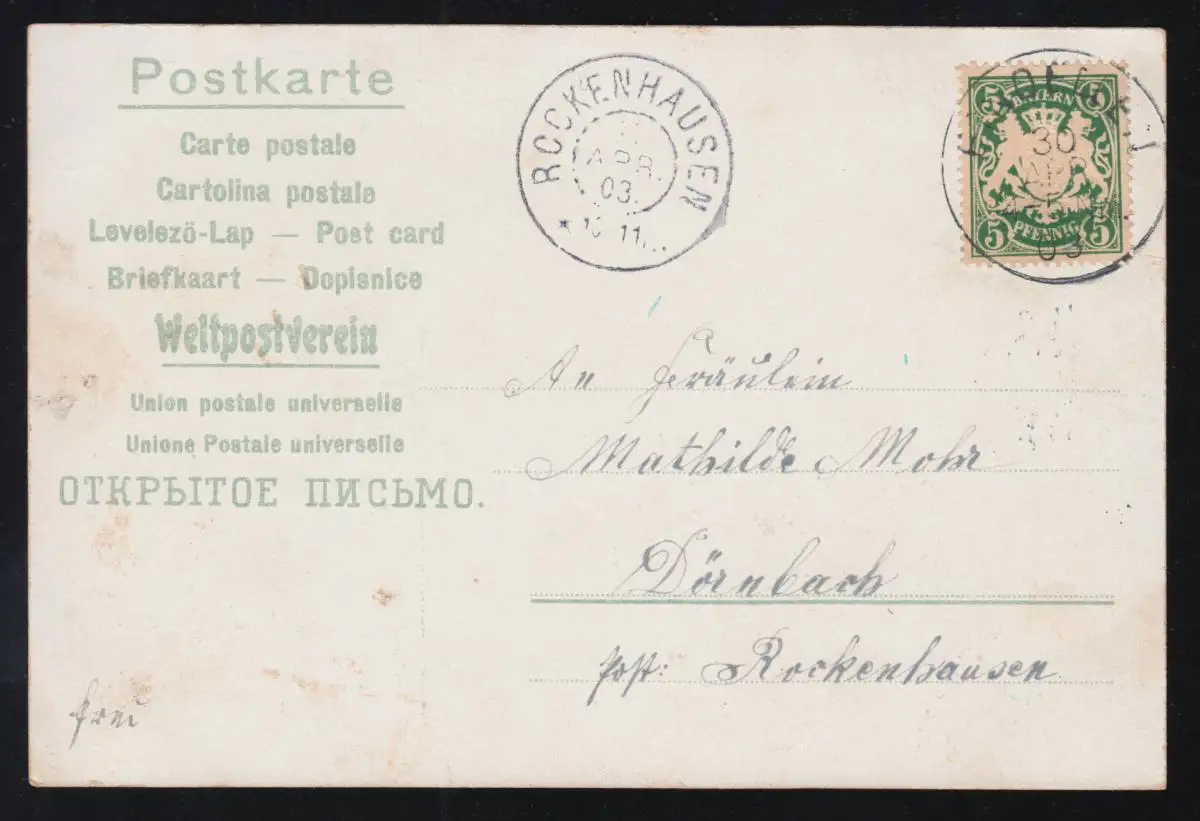 Postkarte
Carte postale
Cartolina postale
Levelező-Lap — Post card
Briefkaart — Dopisnice
Weltpostverein
Union postale universelle
Unione Postale universelle
ОТКРЫТОЕ ПИСЬМО.
ROCKENHAUSEN
APR.
03.
5 5
BAYERN
5 PFENNIG 5
30
APR
03
An Fräulein
Mathilde Mohr
Dörnbach
Post: Rockenhausen
frei